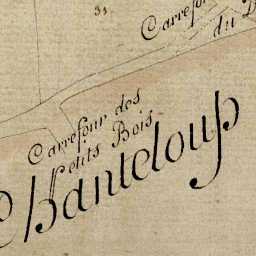 31
Carrefour
du
Carrefour des
Petits Bois
Chanteloup